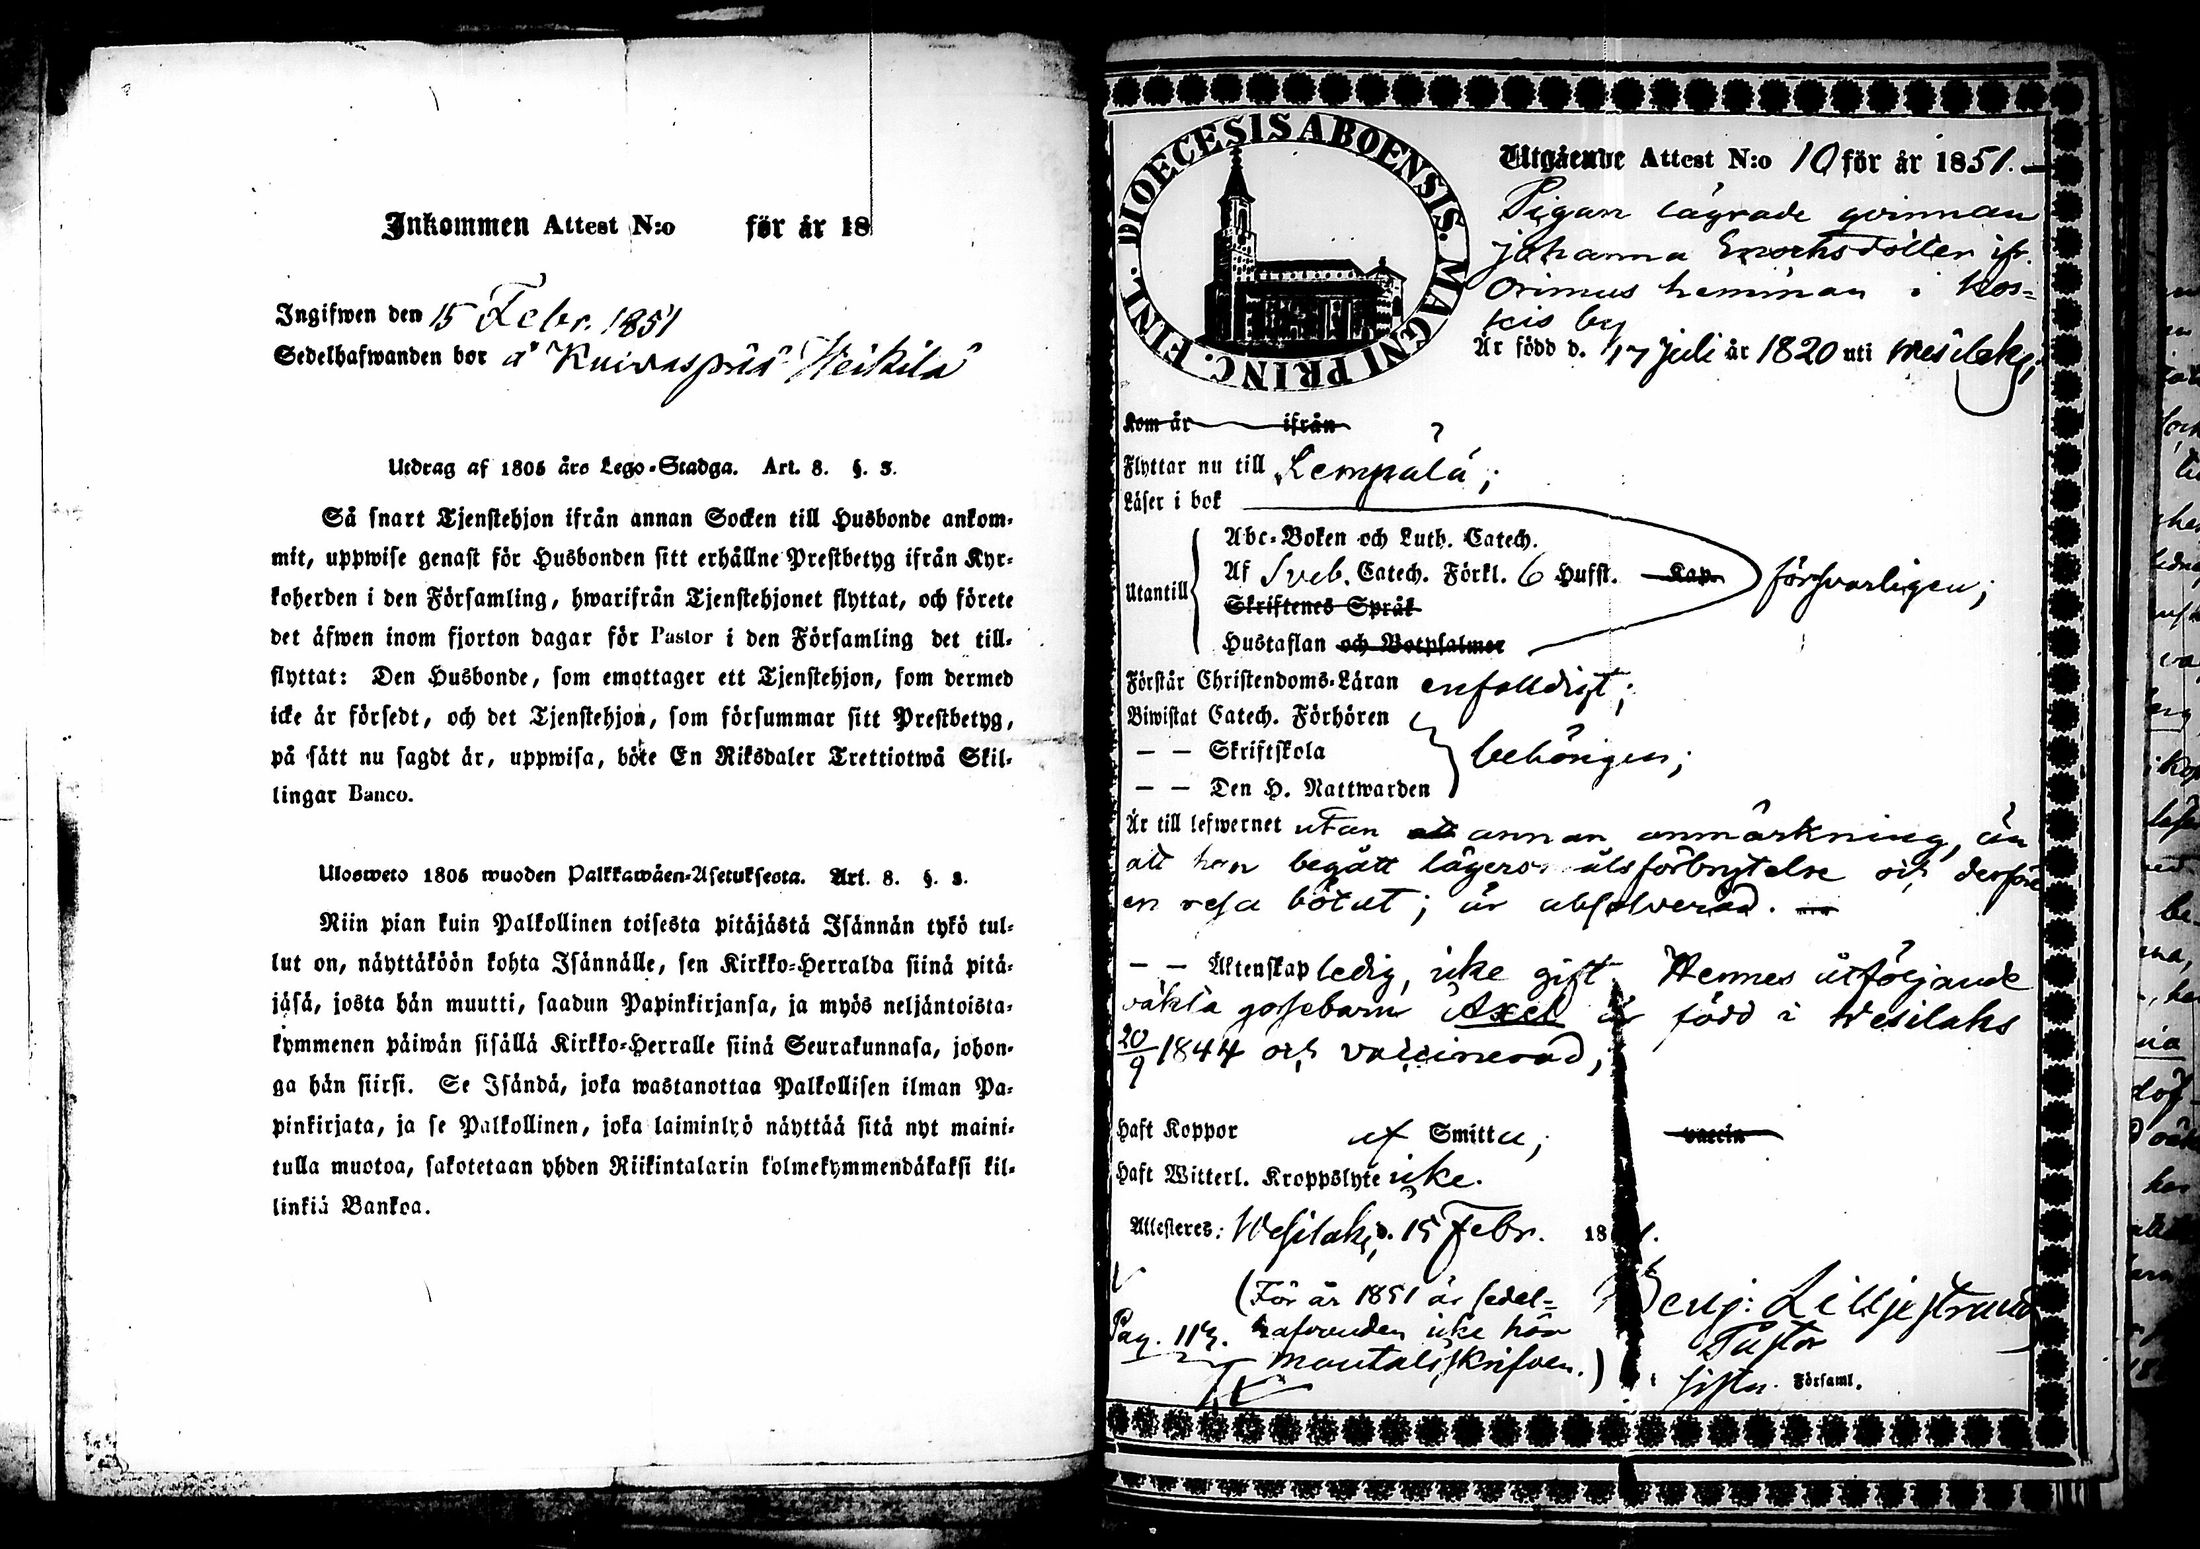 Inkommen Attest N:o för år 18
Ingifwen den 15 Febr. 1851
Sedelhafwanden bor å Kuivaspää Heikilä
Utdrag af 1805 års Lego-Stadga. Art. 8. §. 3.
Så snart Tjenstehjon ifrån annan Socken till Husbonde ankom-
mit, uppwise genast för Husbonden sitt erhållne Prestbetyg ifrån Kyr-
koherden i den Församling, hwarifrån Tjenstehjonet flyttat, och förete
det äfwen inom fjorton dagar för Pastor i den Församling det till-
flyttat: Den Husbonde, som emottager ett Tjenstehjon, som dermed
icke är försedt, och det Tjenstehjon, som försummar sitt Prestbetyg,
på sätt nu sagdt är, uppwisa, böte En Riksdaler Trettiotwå Skil-
lingar Banco.
Ulosweto 1805 wuoden Palkkawäen-Asetuksesta. Art. 8. §. 3.
Niin pian kuin Palkollinen toisesta pitäjästä Isännän tykö tul-
lut on, näyttäköön kohta Isännälle, sen Kirkko-Herralda siinä pitä-
jäsä, josta hän muutti, saadun Papinkirjansa, ja myös neljäntoista-
kymmenen päiwän sisällä Kirkko-Herralle siinä Seurakunnasa, johon-
ga hän siirsi. Se Isändä, joka wastanottaa Palkollisen ilman Pa-
pinkirjata, ja se Palkollinen, joka laiminlyö näyttää sitä nyt maini-
tulla muotoa, sakotetaan yhden Riikintalarin kolmekymmendäkaksi kil-
linkiä Bankoa.
DIOECESIS ABOENSIS. MAGNI PRINC. FINL.
Utgående Attest N:o 10 för år 1851.
Pigan lägrade qvinnan
Johanna Enochsdotter ifr.
Orimus hemman i Kos-
kis by
Är född d. 17 Juli år 1820 uti Wesilaks,
Kom år ifrån
Flyttar nu till Lempälä;
Läser i bok
Abc-Boken och Luth. Catech.
Utantill Af Sveb. Catech. Förkl. 6 Hufst. Kap. försvarligen;
Skriftenes Språk
Hustaflan och Botpsalmer
Förstår Christendoms-Läran enfalldigt;
Biwistat Catech. Förhören
— — Skriftskola behörigen;
— — Den H. Nattwarden
Är till lefwernet utan att annan anmärkning, än
att hon begått lägersmålsförbrytelse och derföre
en resa bötat; är absolverad.
— — Äktenskap ledig, icke gift. Hennes åtföljande
oäkta gossebarn Axel är född i Wesilaks
20/9 1844 och vaccinerad;
Haft Koppor af Smitta; vaccin
Haft Witterl. Kroppslyte icke.
Attesteres: Wesilaks d. 15 Febr. 1851.
(För år 1851 är sedel-
hafvanden icke här
mantalsskrifven.)
Pag. 113.
Benj: Lilljestrand
Pastor
Församl.